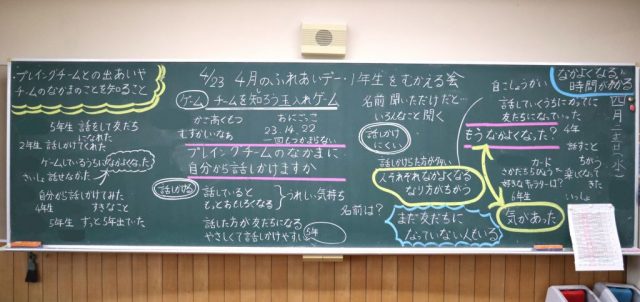 プレイングチームとの出あいや
チームのなかまのことを知ること
5年生 話をして友だち
になれた
2年生 話しかけてくれた
ゲームしているうちになかよくなった。
さいしょ 話せなかった
自分から話しかけてみた
4年生 すきなこと
5年生 ずっと5年出ていた
4/23 4月のふれあいデー・1年生をむかえる会
ゲーム チームを知ろう玉入れゲーム
かご高くもつ
むずかしいなぁ
おにごっこ
23.14.22
一回もつかまらない
プレイングチームのなかまに
自分から話しかけますか
話しかける
話していると
もっとおもしろくなる
うれしい気持ち
話した方が友だちになる
やさしくて話しかけやすい
6年
名前 聞いただけだと…
いろんなこと聞く
話しかけにくい
話しかけた方が早い
人それぞれなかよくなる
なり方がちがう
名前は?
まだ友だちに
なっていない人もいる
自こしょうかい
話していくうちにかってに
友だちになっていた。
もうなかよくなった?
4年
話すこと
カード
さかだちもらった
好きなキャラは?
6年生
ちがう
楽しくなってきた
いっしょ
気があった
なかよくなる
時間がある
四月
日(水)